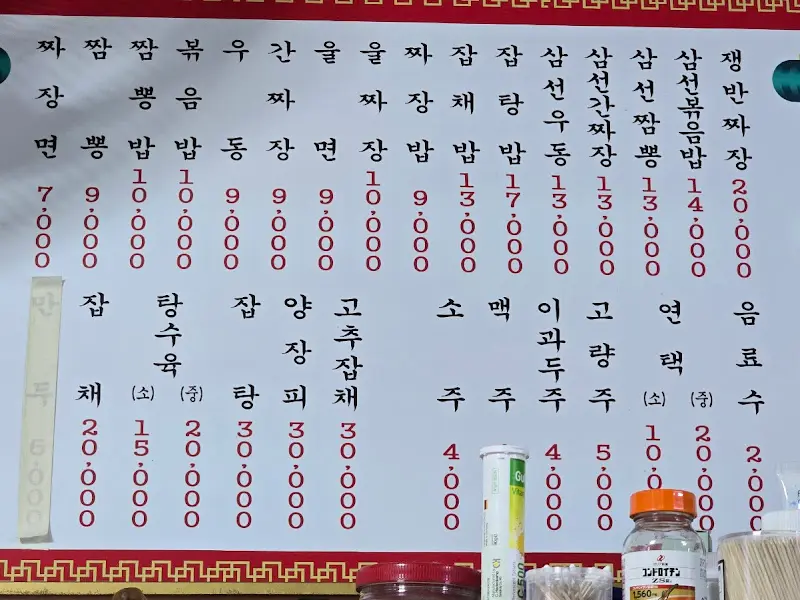 짜장면 7,000
짬뽕 9,000
짬뽕밥 10,000
볶음밥 10,000
우동 9,000
간짜장 9,000
울면 9,000
울짜장 10,000
짜장밥 9,000
잡채밥 13,000
잡탕밥 17,000
삼선우동 13,000
삼선간짜장 13,000
삼선짬뽕 13,000
삼선볶음밥 14,000
쟁반짜장 20,000
만두
잡채 20,000
탕수육
(소) 15,000
(중) 20,000
잡탕 30,000
양장피 30,000
고추잡채 30,000
소주 4,000
맥주
이과두주 4,000
고량주 5,000
연택
(소) 10,0
(중) 20,000
음료수 2,000
コンドロイチン
ZS錠
1,560